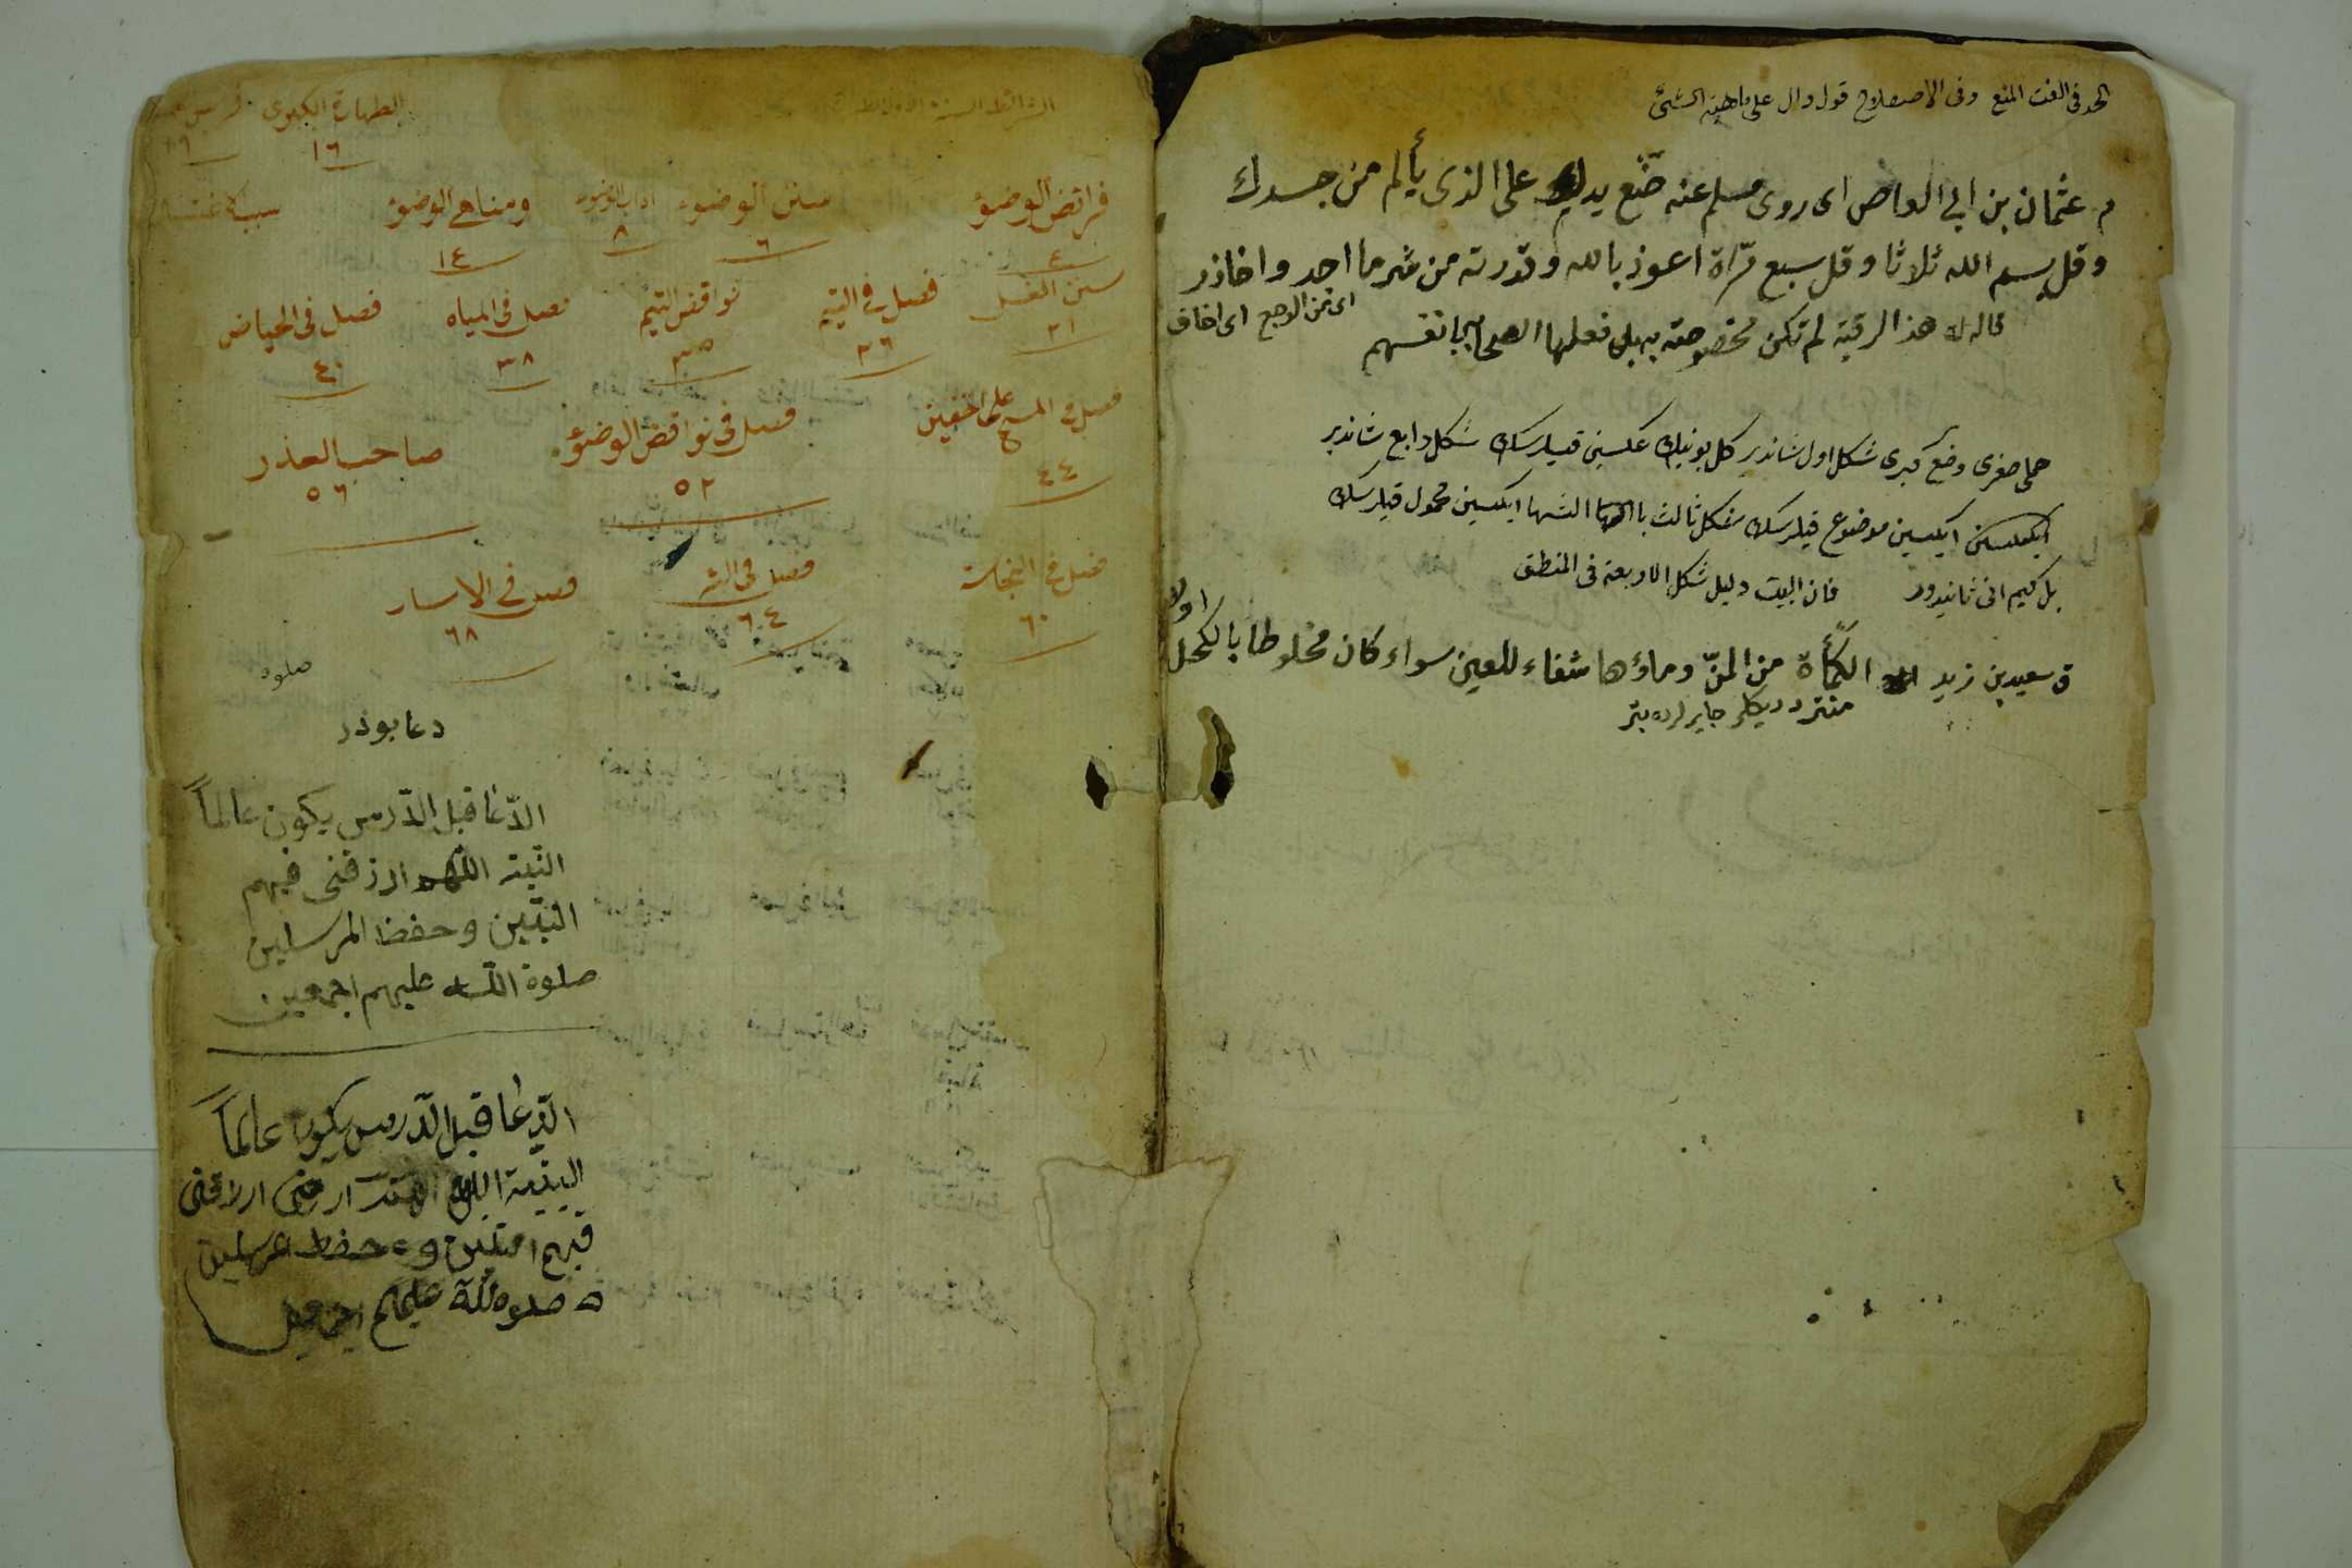 الحد فى اللغت المنع وفى الاصطلاح قول دال على ماهية الشئ
م عثمان بن ابى العاص اى روى مسلم عنه ضع يدك على الذى يألم من جسدك
وقل بسم الله ثلاثا وقل سبع مرّاة اعوذ بالله وقدرته من شر ما اجد واحاذر
اى من الوجع اى اخاف
قاله له هذا الرقية لم تكن مخصوصة به بل فعلها الصحابى بانفسهم
حمل صغرى وضع كبرى شكل اول شاندير كل بونيك عكسين قيلرسك شكل رابع شاندير
ايكيسين موضوع قيلرسك شكل ثالث ايكسين محمول قيلرسك
بل كيم انى ثانيدور فان البيت دليل شكل الاربعة فى المنطق
ق سعيد بن زيد الكمأة من المنّ وماؤها شفاء للعين سواء كان مخلوطا بالكحل
اولا
الطهارة الكبرى
١٦
فرائض الوضوء
٤
سنن الوضوء
٦
اداب الوضوء
٨
ومناهى الوضوء
١٤
سنن الغسل
٢١
فصل فى التيمم
٢٦
نواقض التيمم
٣٥
فصل فى المياه
٣٨
فصل فى الحياض
٤٠
فصل فى المسح على الخفين
٤٤
فصل فى نواقض الوضوء
٥٢
صاحب العذر
٥٦
فصل فى النجاسة
٦٠
فصل فى البئر
٦٤
فصل فى الاسار
٦٨
صلوه
دعا بودر
الدّعا قبل الدّرس يكون عالماً
البّتة اللّهم ارزقنى فهم
النبّين وحفظ المرسلين
صلوة اللّه عليهم اجمعين
الدّعا قبل الدّرس يكون عالماً
وحفظ
صلوه للّه عليهم اجمعين